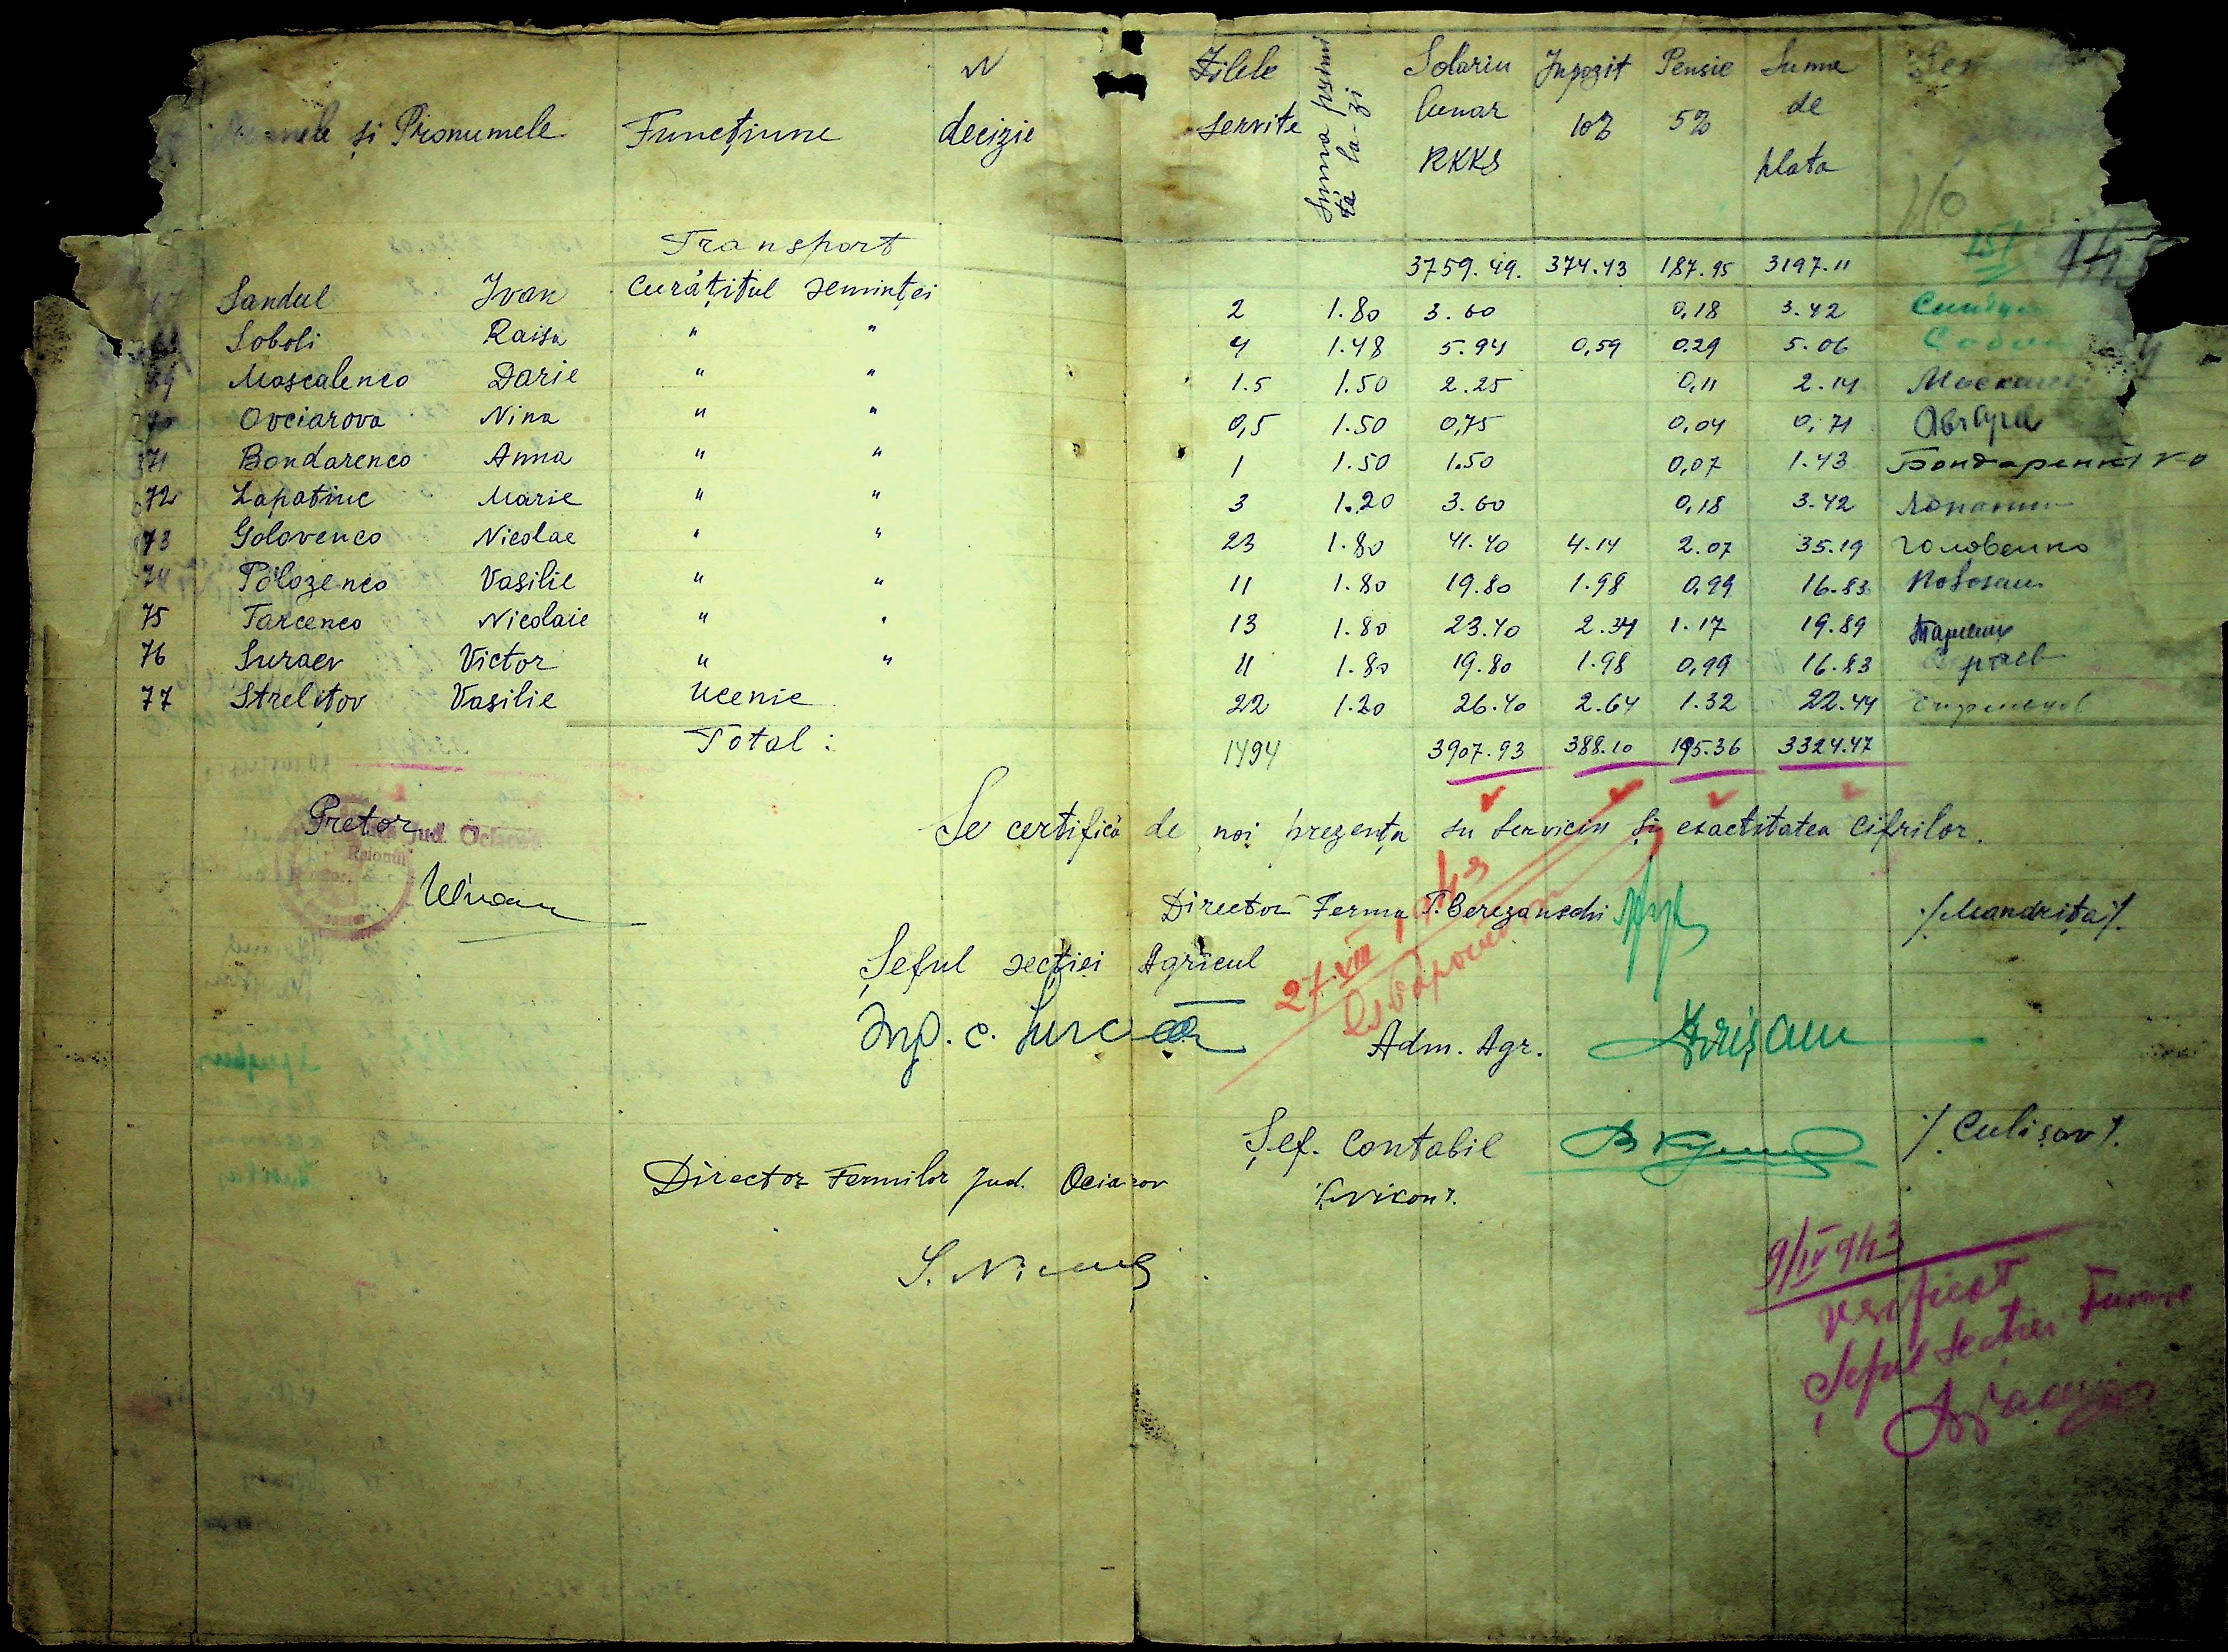 și Pronumele Funcțiune N decizie Zilele servite Suma la-zi Solariu lunar RKKS Inpozit 10% Pensie 5% Suma de plata
Transport 3759.49. 374.43 187.95 3197.11
Sandul Ivan Curățitul semintei 2 1.80 3.60 0,18 3.42
Soboli Raisa " " 4 1.48 5.94 0,59 0.29 5.06
Moscalenco Darie " " 1.5 1.50 2.25 0,11 2.14
Ovciarova Nina " " 0,5 1.50 0,75 0,04 0,71
71 Bondarenco Anna " " 1 1.50 1.50 0,07 1.43 Бондаренко
72 Lapatiuc Marie " " 3 1.20 3.60 0,18 3.42
73 Golovenco Nicolae " " 23 1.80 41.40 4.14 2.07 35.19 Головенко
74 Polozenco Vasilie " " 11 1.80 19.80 1.98 0,99 16.83
75 Tarcenco Nicolaie " " 13 1.80 23.40 2.34 1.17 19.89
76 Suraev Victor " " 11 1.80 19.80 1.98 0,99 16.83
77 Strelițov Vasilie Ucenic 22 1.20 26.40 2.64 1.32 22.44
Total: 1494 3907.93 388.10 195.36 3324.47
Pretor
Se certifică de noi prezența su serviciu și esactitatea cifrilor.
Director Ferma T. Berezanschi /.Mandrița/.
27 VIII 1943
Șeful secției Agricul
Adm. Agr.
Șef. Contabil /.Culișov/.
Director Fermilor Jud. Ociacov
9/IV 943
verificat
Șeful Secției